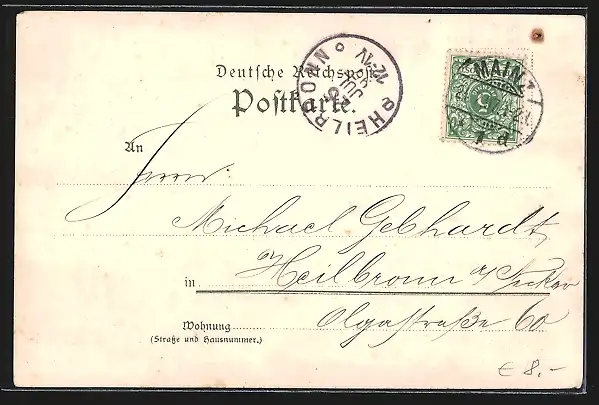 Deutsche Reichspost
Postkarte.
HEILBRONN
JUL
MAINZ
1 d
An
Herrn
Michael Gebhardt,
in Heilbronn a/Neckar
Wohnung
Olgastraße 60
(Straße und Hausnummer.)
€ 8,-